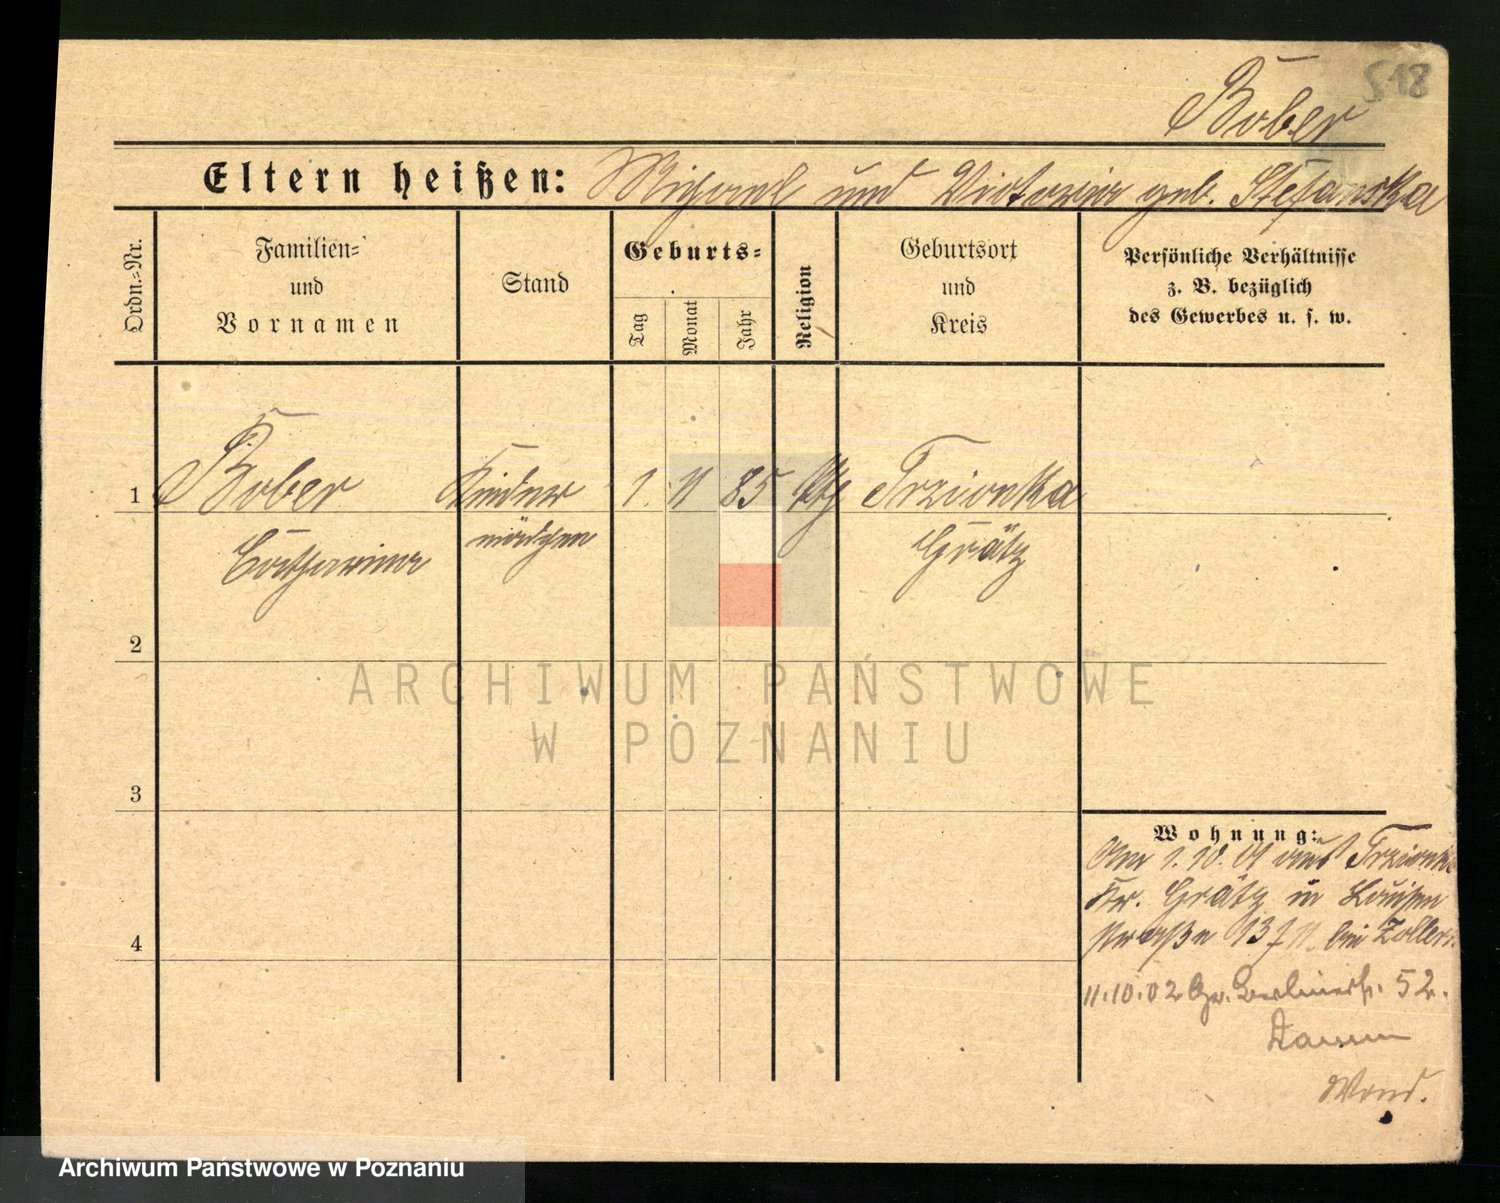 518
Bober
Eltern heißen: Michael und Victoria geb. Stefanska
Ordn.-Nr.
Familien-
und
Vornamen
Stand
Geburts-
Tag
Monat
Jahr
Religion
Geburtsort
und
Kreis
Persönliche Verhältnisse
z. B. bezüglich
des Gewerbes u. s. w.
1 Bober Kinder 1. 11 85 kth Trzionka
Catharina mädchen Grätz
2
ARCHIWUM PAŃSTWOWE
W POZNANIU
3
Wohnung:
Am 1.10.01 aus Trzionka
Kr. Grätz in Louisen
straße 13 II. bei Zoller
4
11.10.02 Gr. Berlinerstr. 52.
Wend.
Archiwum Państwowe w Poznaniu